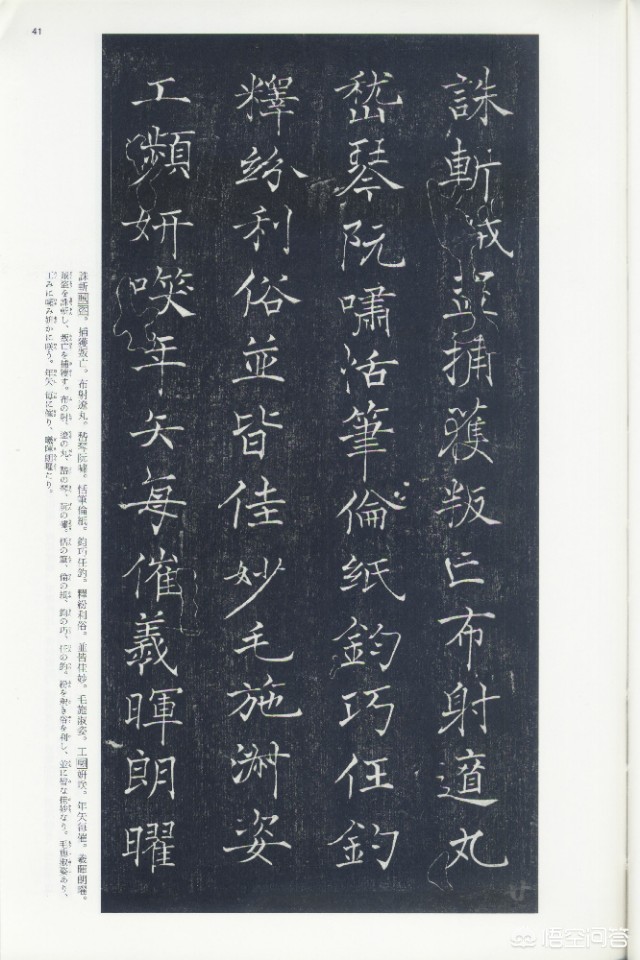 41
誅斬賊盜捕獲叛亡布射遼丸
嵇琴阮嘯恬筆倫紙鈞巧任釣
釋紛利俗並皆佳妙毛施淑姿
工頻妍咲年矢每催羲暉朗曜
誅斬。捕獲叛亡。布射遼丸。嵇琴阮嘯。恬筆倫紙。鈞巧任釣。釋紛利俗。並皆佳妙。毛施淑姿。工妍咲。年矢每催。羲暉朗曜。
悟空问答